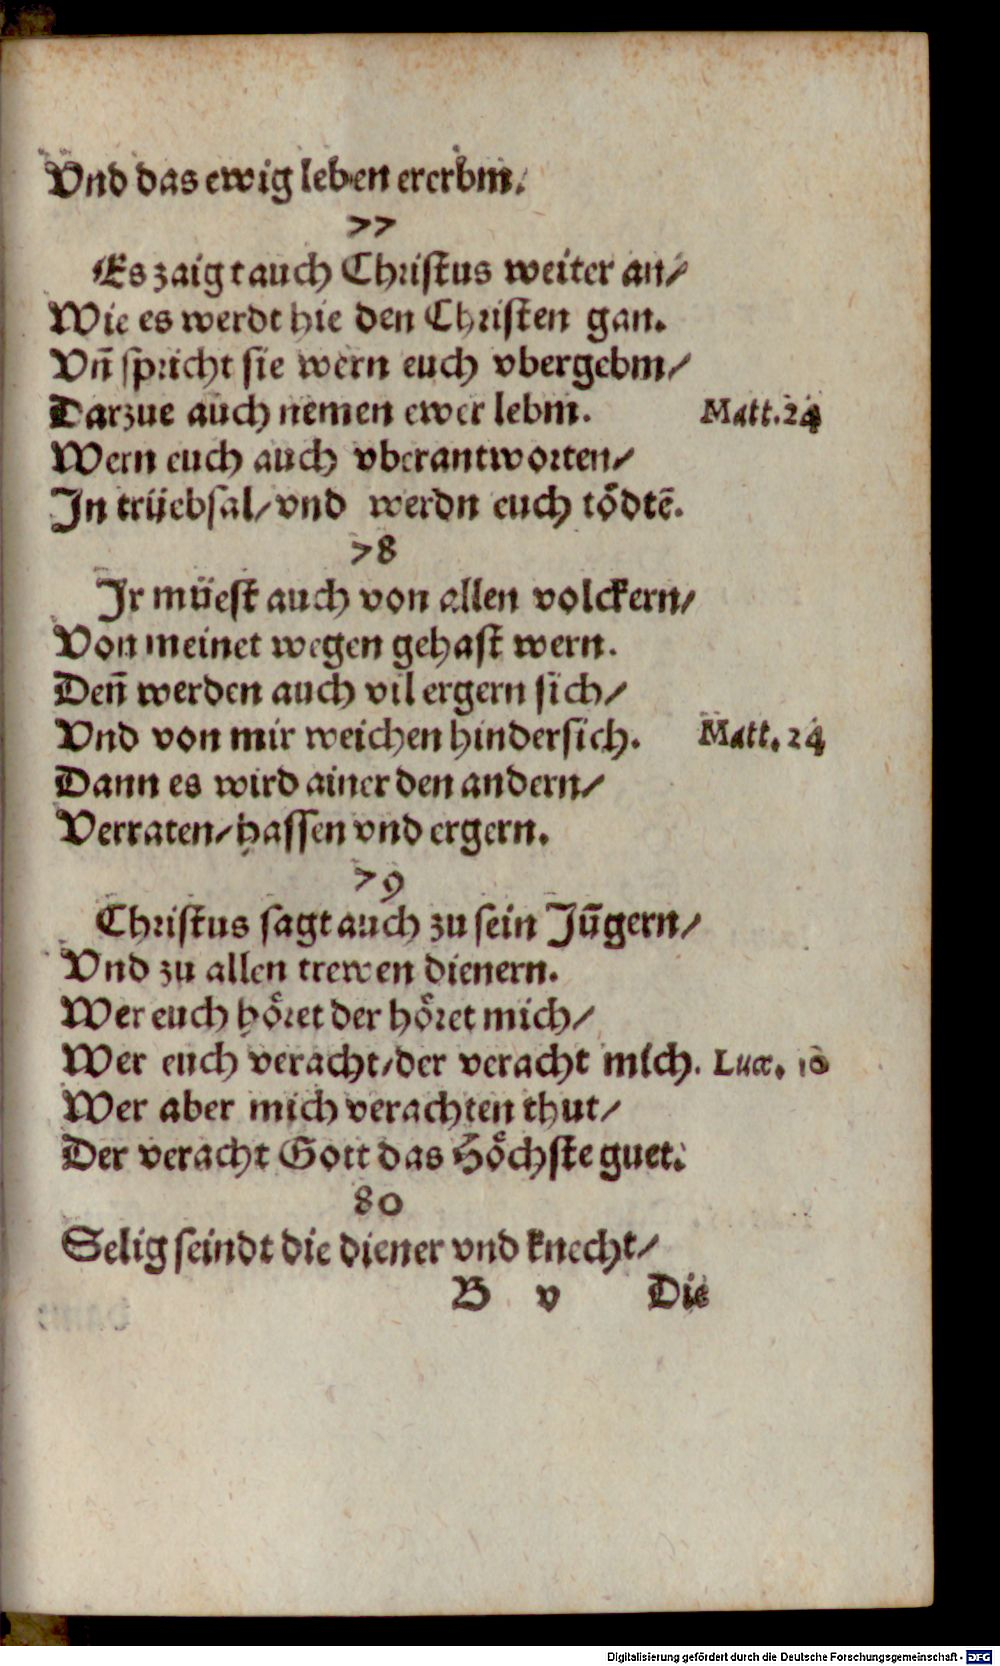 Vnd das ewig leben ererbm.
77
Es zaigt auch Christus weiter an/
Wie es werdt hie den Christen gan.
Vñ spricht sie wern euch vbergebm/
Darzue auch nemen ewer lebm. Matt. 24
Wern euch auch vberantworten/
In trüebsal/ vnd werdn euch tödtē.
78
Ir müest auch von allen volckern/
Von meinet wegen gehast wern.
Deñ werden auch vil ergern sich/
Vnd von mir weichen hindersich. Matt. 24
Dann es wird ainer den andern/
Verraten/ hassen vnd ergern.
79
Christus sagt auch zu sein Jūgern/
Vnd zu allen trewen dienern.
Wer euch höret der höret mich/
Wer euch veracht/ der veracht mich. Luc. 10
Wer aber mich verachten thut/
Der veracht Gott das Höchste guet.
80
Selig seindt die diener vnd knecht/
B v Die
Digitalisierung gefördert durch die Deutsche Forschungsgemeinschaft - DFG